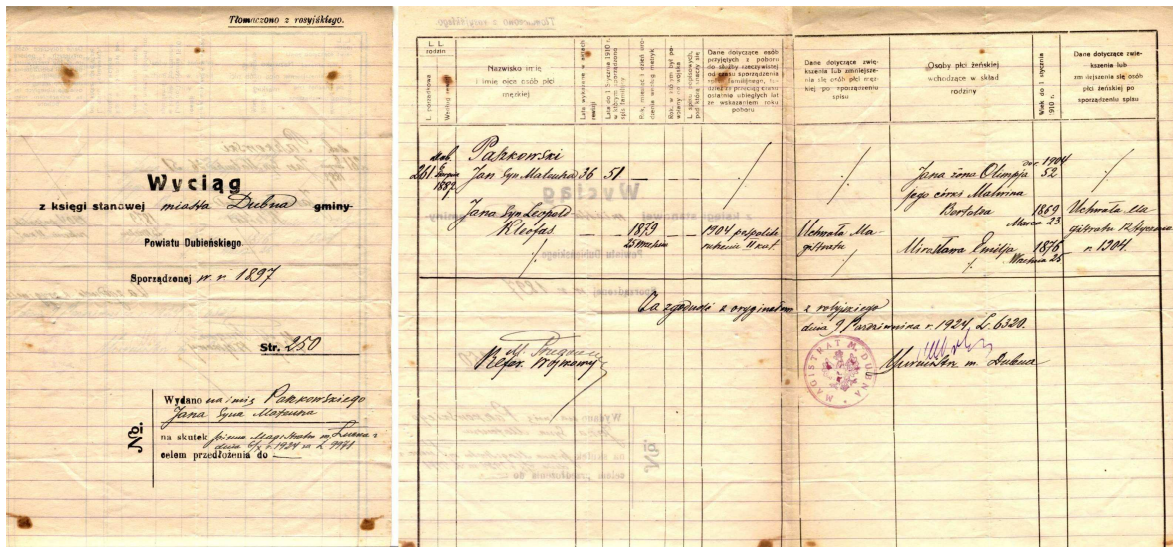 Tłomaczono z rosyjskiego.
Wyciąg
z księgi stanowej miasta Dubna gminy-
Powiatu Dubieńskiego
Sporządzonej w r. 1897
Str. 250
No.
Wydano na imię Paszkowskiego
Jana syna Mateusza
na skutek pisma Magistratu m.
dnia r. 1924 za L.
celem przedłożenia do —
L. L.
rodzin
L. porządkowa
Według rewizji
Nazwisko imię
i imię ojca osób płci
męzkiej
Lata wykazane w spisach
rewizji
Lata do 1 stycznia 1910 r.
w którym sporządzono
spis familijny
Rok, miesiąc i dzień uro-
dzenia według metryk
Rok, w którym był po-
wołany do wojska
L. spisów popisowych,
pod którą liczy się
Dane dotyczące osób
przyjętych z poboru
do służby rzeczywistej
od czasu sporządzenia
spisu familijnego, tu-
dzież za przeciąg czasu
ostatnio ubiegłych lat
ze wskazaniem roku
poboru
Dane dotyczące zwię-
kszenia lub zmniejsze-
nia się osób płci męz-
kiej po sporządzeniu
spisu
Osoby płci żeńskiej
wchodzące w skład
rodziny
Wiek do 1 stycznia
1910 r.
Dane dotyczące zwię-
kszenia lub
zmniejszenia się osób
płci żeńskiej po
sporządzeniu spisu
Paszkowski
261 1887 Jan syn Mateusza 36 51 — —
do r. 1904
Jana żona Olimpja 52
jego córki Malwina
1869
Marca 23
Jana syn Leopold
Kleofas — 1879 — —
25
1904 pospolite
ruszenie II kat.
Uchwała Ma-
gistratu
Mirosława Emilja 1876
Września 25
Uchwała Ma-
gistratu 12 Stycznia
n. 1304
Za zgodność z oryginałem z rosyjskiego
dnia 9 Października r. 1924, L. 6320.
Refer. Wojskowy
Burmistrz m. Dubna
MAGISTRAT M. DUBNA